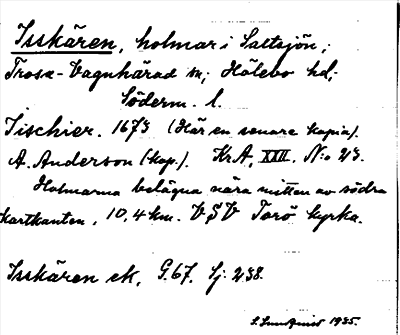 Isskären, holmar i Saltsjön;
Trosa-Vagnhärad sn; Hölebo hd;
Söderm. l.
Isschier. 1673 (Här en senare kopia).
A. Anderson (kop.). K.A. XXII. N:o 23.
Holmarna belägna nära mitten av södra
kartkanten, 10,4 km. VSV Torö kyrka.
Isskären ek. G.67. Sj: 238.
1935.